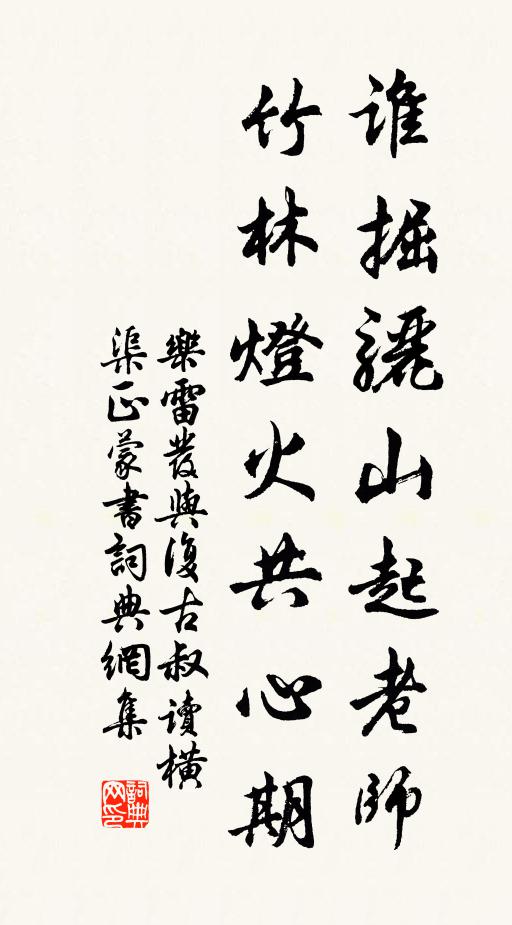 谁掘驪山起老师
竹林燈火共心期
樂雷發與復古叔讀横
渠正蒙書詞典網集
詞典
网印